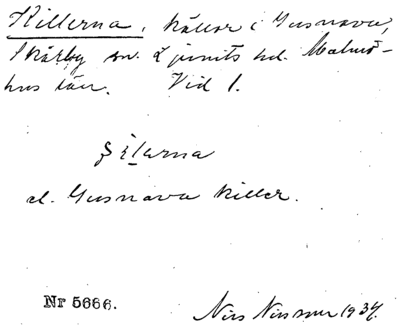 Killerna, källor i Gusnava,
Skårby sn. Ljunits hd. Malmö-
hus län. Vid 1.
el. Gusnava killer.
Nr 5666.
Nils Nilsson 1934.